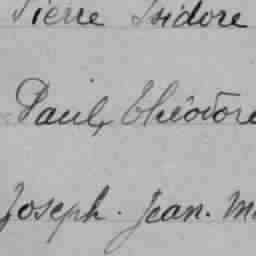 Pierre Isidore
Paul, Théodore
Joseph. Jean. M